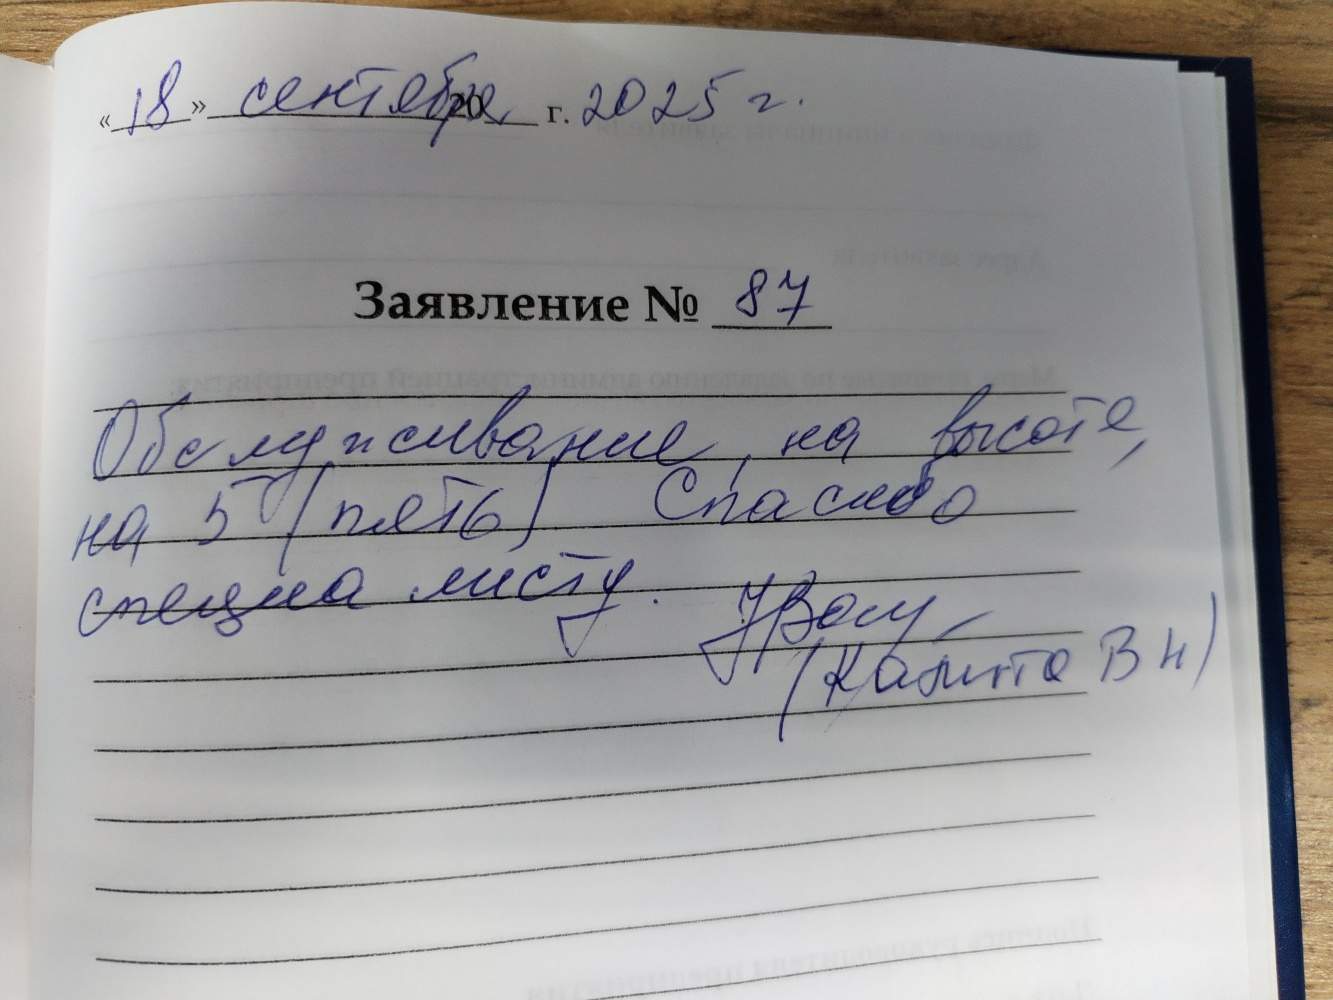 «18» сентября 20 г. 2025 г.
Заявление № 87
Обслуживание, на высоте,
на 5 (пять). Спасибо
специалисту.
(В Н)